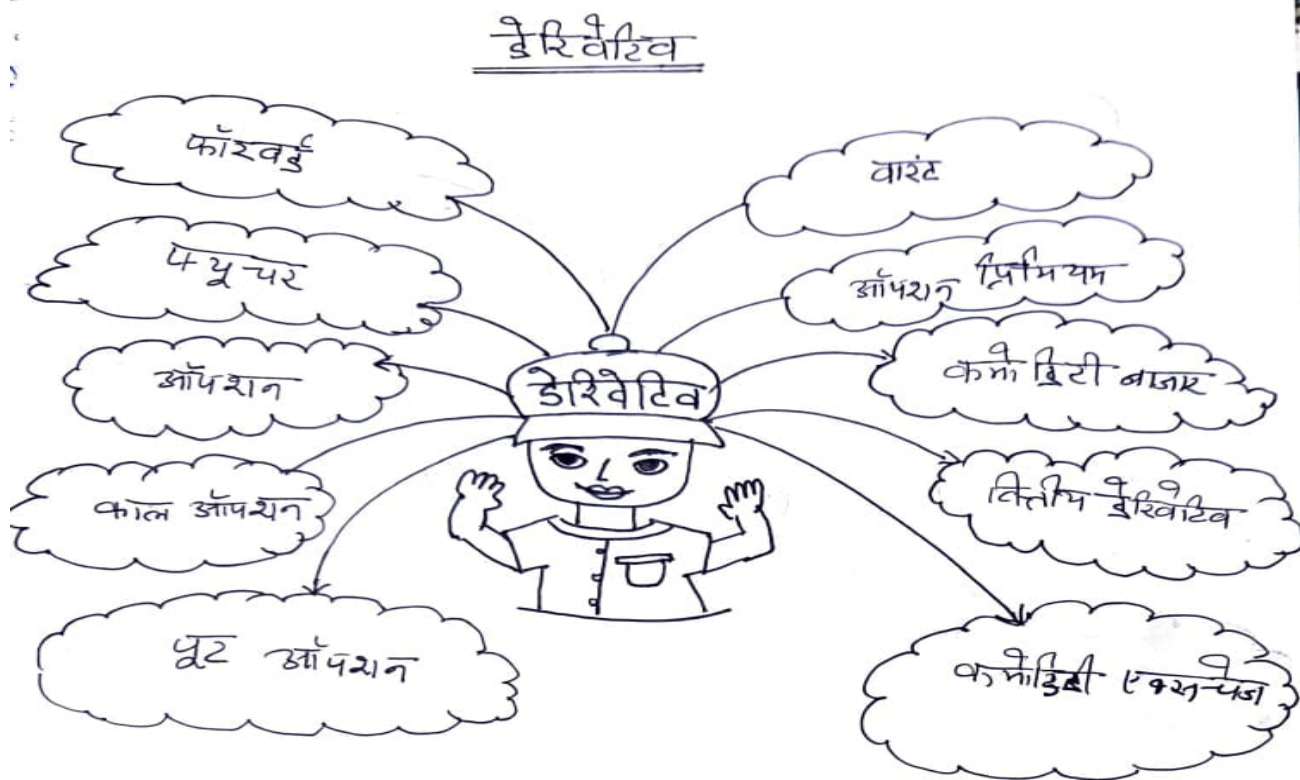 डेरिवेटिव
फॉरवर्ड
फ्यूचर
ऑपशन
कॉल ऑपशन
पूट ऑपशन
डेरिवेटिव
वारंट
ऑपशन प्रिमियम
कमोडिटी बाजार
वित्तीय डेरिवेटिव
कमोडिटी एक्सचेंज